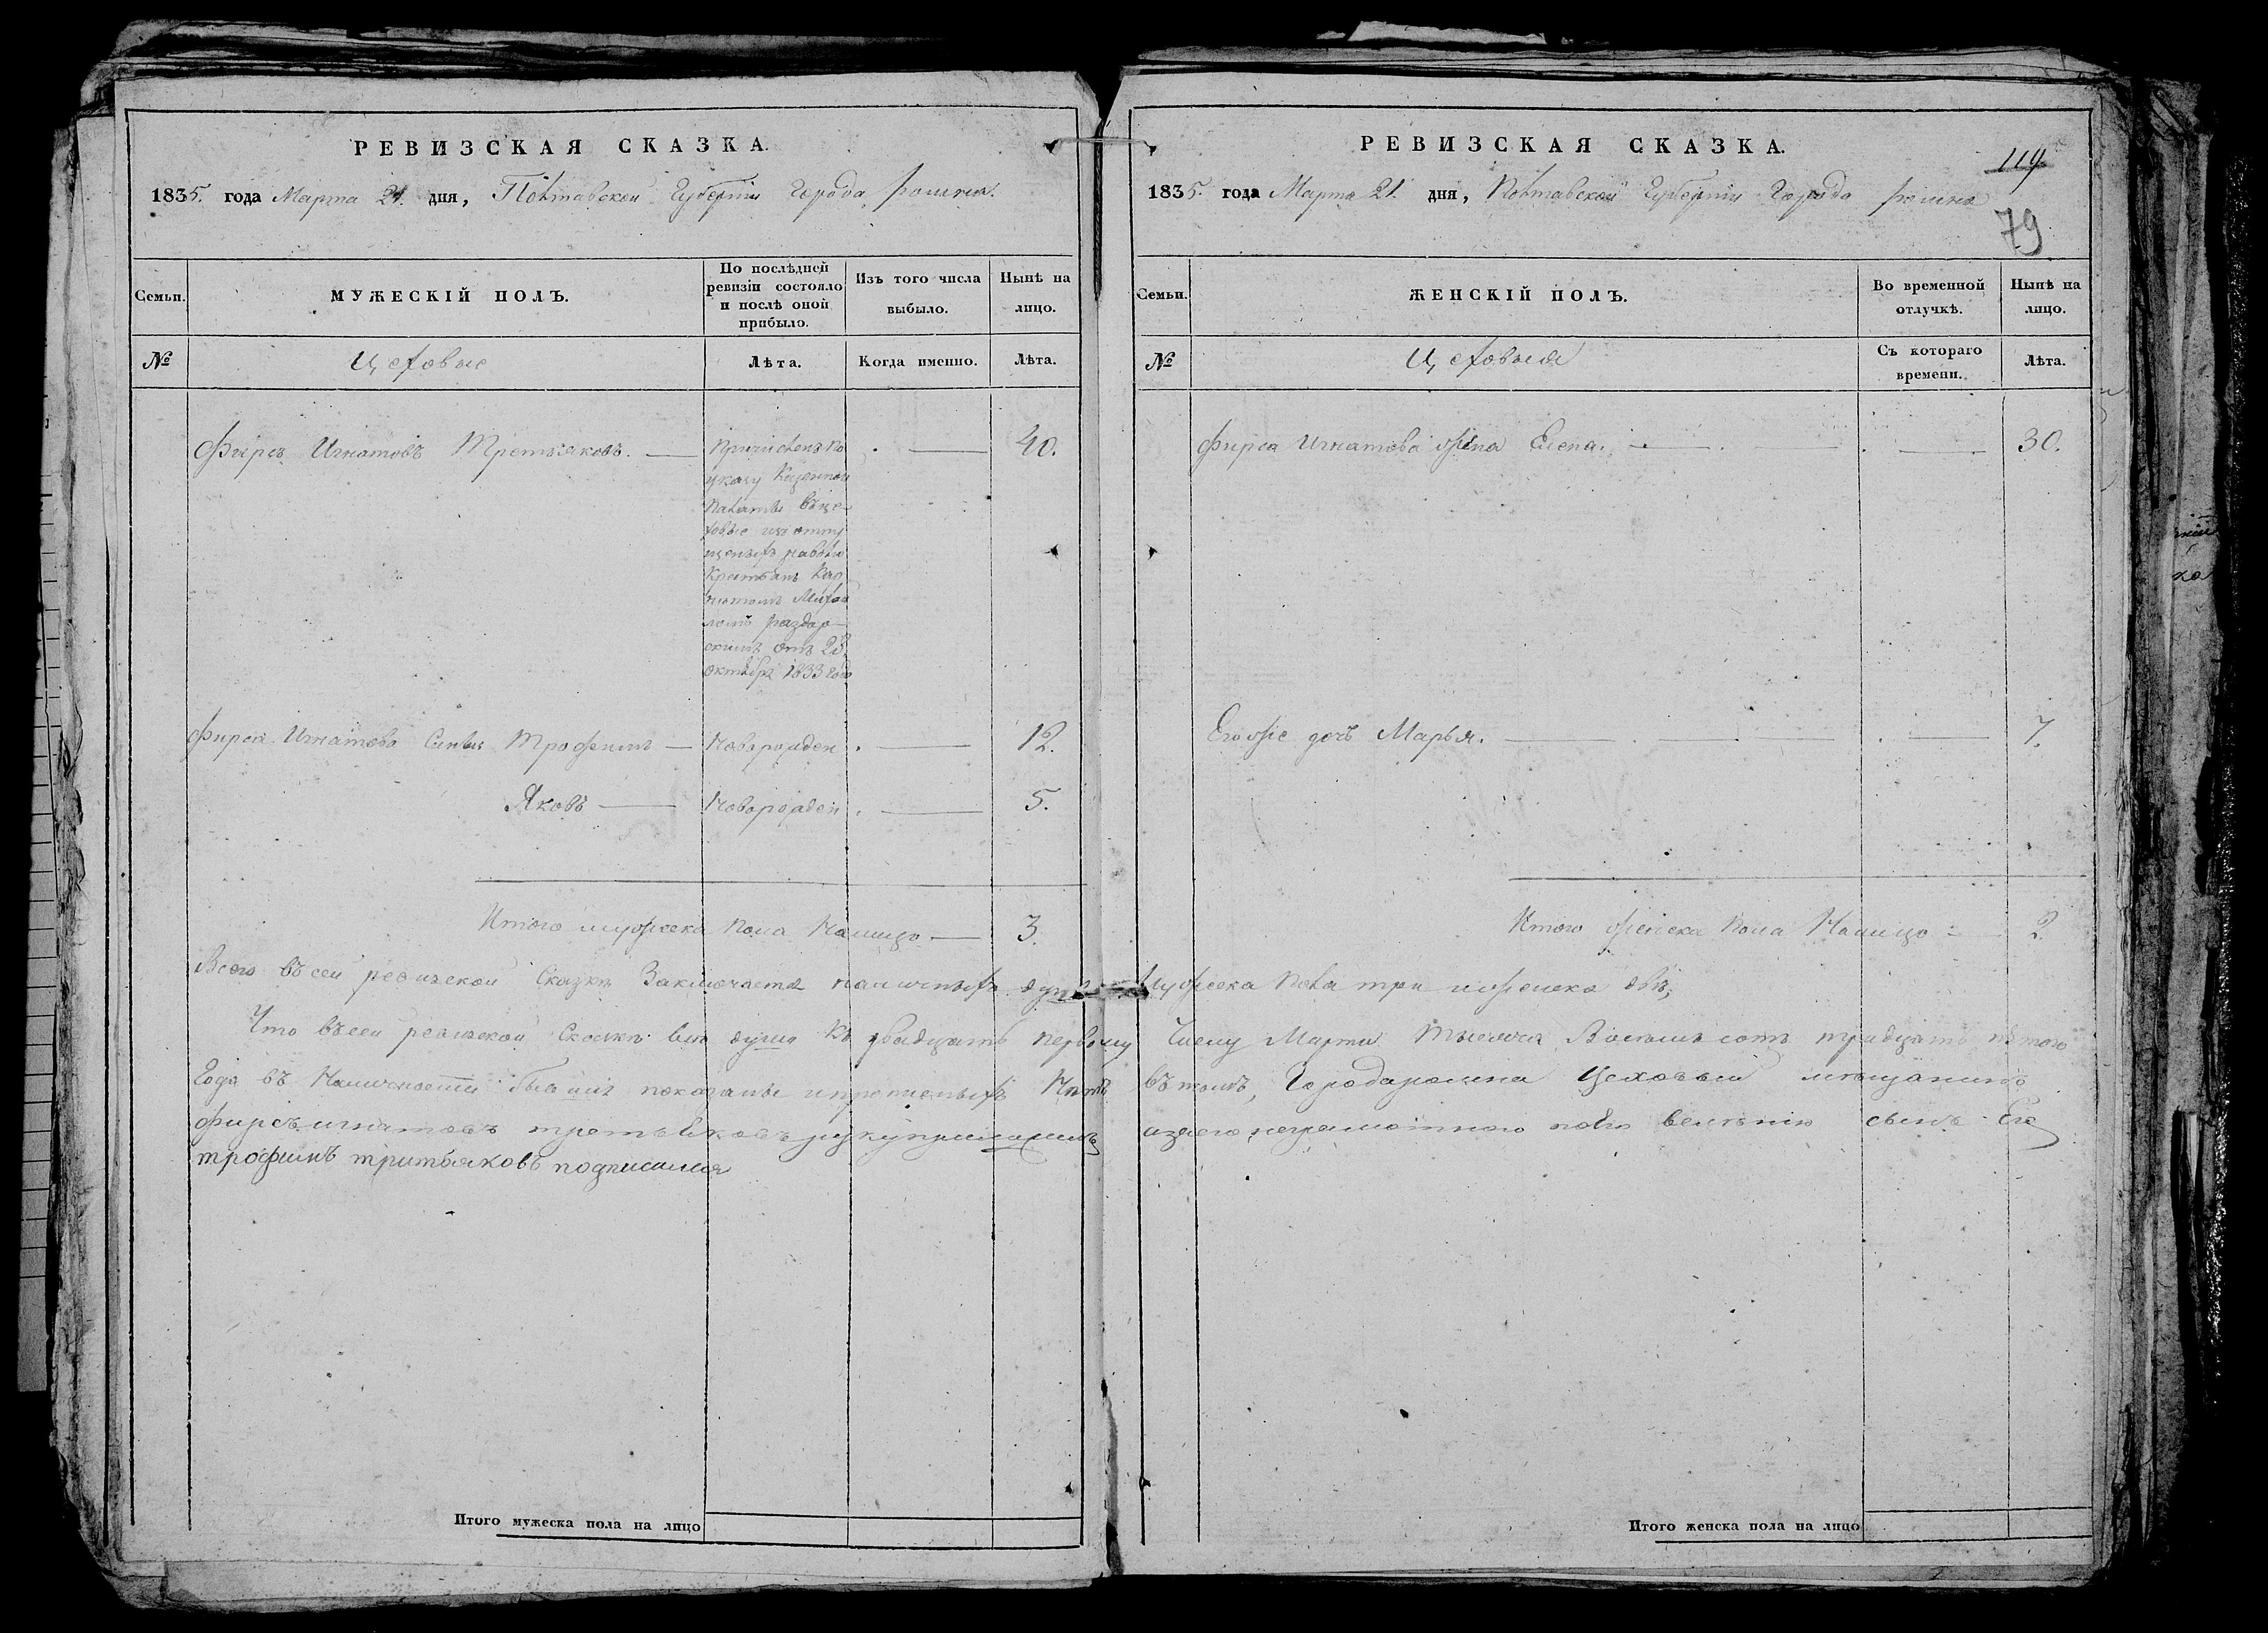 РЕВИЗСКАЯ СКАЗКА.
1835. года Марта 21. дня, Полтавской Губерніи Города Ромна.
Семьи.
МУЖЕСКІЙ ПОЛЪ.
По послѣдней
ревизіи состояло
и послѣ оной
прибыло.
Изъ того числа
выбыло.
Нынѣ на
лицо.
№
Цеховые
Лѣта.
Когда именно.
Лѣта.
Фирсъ Игнатовъ Третьяковъ. —
Причисленъ по
указу Казенной
Палаты въ це-
ховые изъ отпу
щеныхъ на волю
Крестьянъ
отъ 23.
октября 1833 года
— 40.
Фирса Игнатова Сынъ Трофимъ — Новорожден . — 12.
Яковъ — Новорожден . — 5.
Итого мужеска пола Налицо — 3.
Всего въ сей ревизской Сказкѣ Заключается наличныхъ душъ
Что въ сей ревизской Сказкѣ всѣ души къ двадцать первому
Года въ Наличности показаны и прописныхъ Нѣтъ
фирсъ игнатовъ третьяковъ
трофимъ тритьяковъ подписался
Итого мужеска пола на лицо
РЕВИЗСКАЯ СКАЗКА.
119
1835. года Марта 21. дня, Полтавской Губерніи Города Ромна
79
Семьи.
ЖЕНСКІЙ ПОЛЪ.
Во временной
отлучкѣ.
Нынѣ на
лицо.
№
Цеховыя
Съ котораго
времени.
Лѣта.
Фирса Игнатова жена Елена. — 30.
Его же дочь Марья. — 7.
Итого женска пола Налицо — 2.
мужеска пола три и женска двѣ,
Числу Марта Тысяча Восемь сотъ тридцать пятого
въ томъ, Города ромна Цеховый мѣщанинъ
а за его неграмотного по его веленію сынъ Его
Итого женска пола на лицо